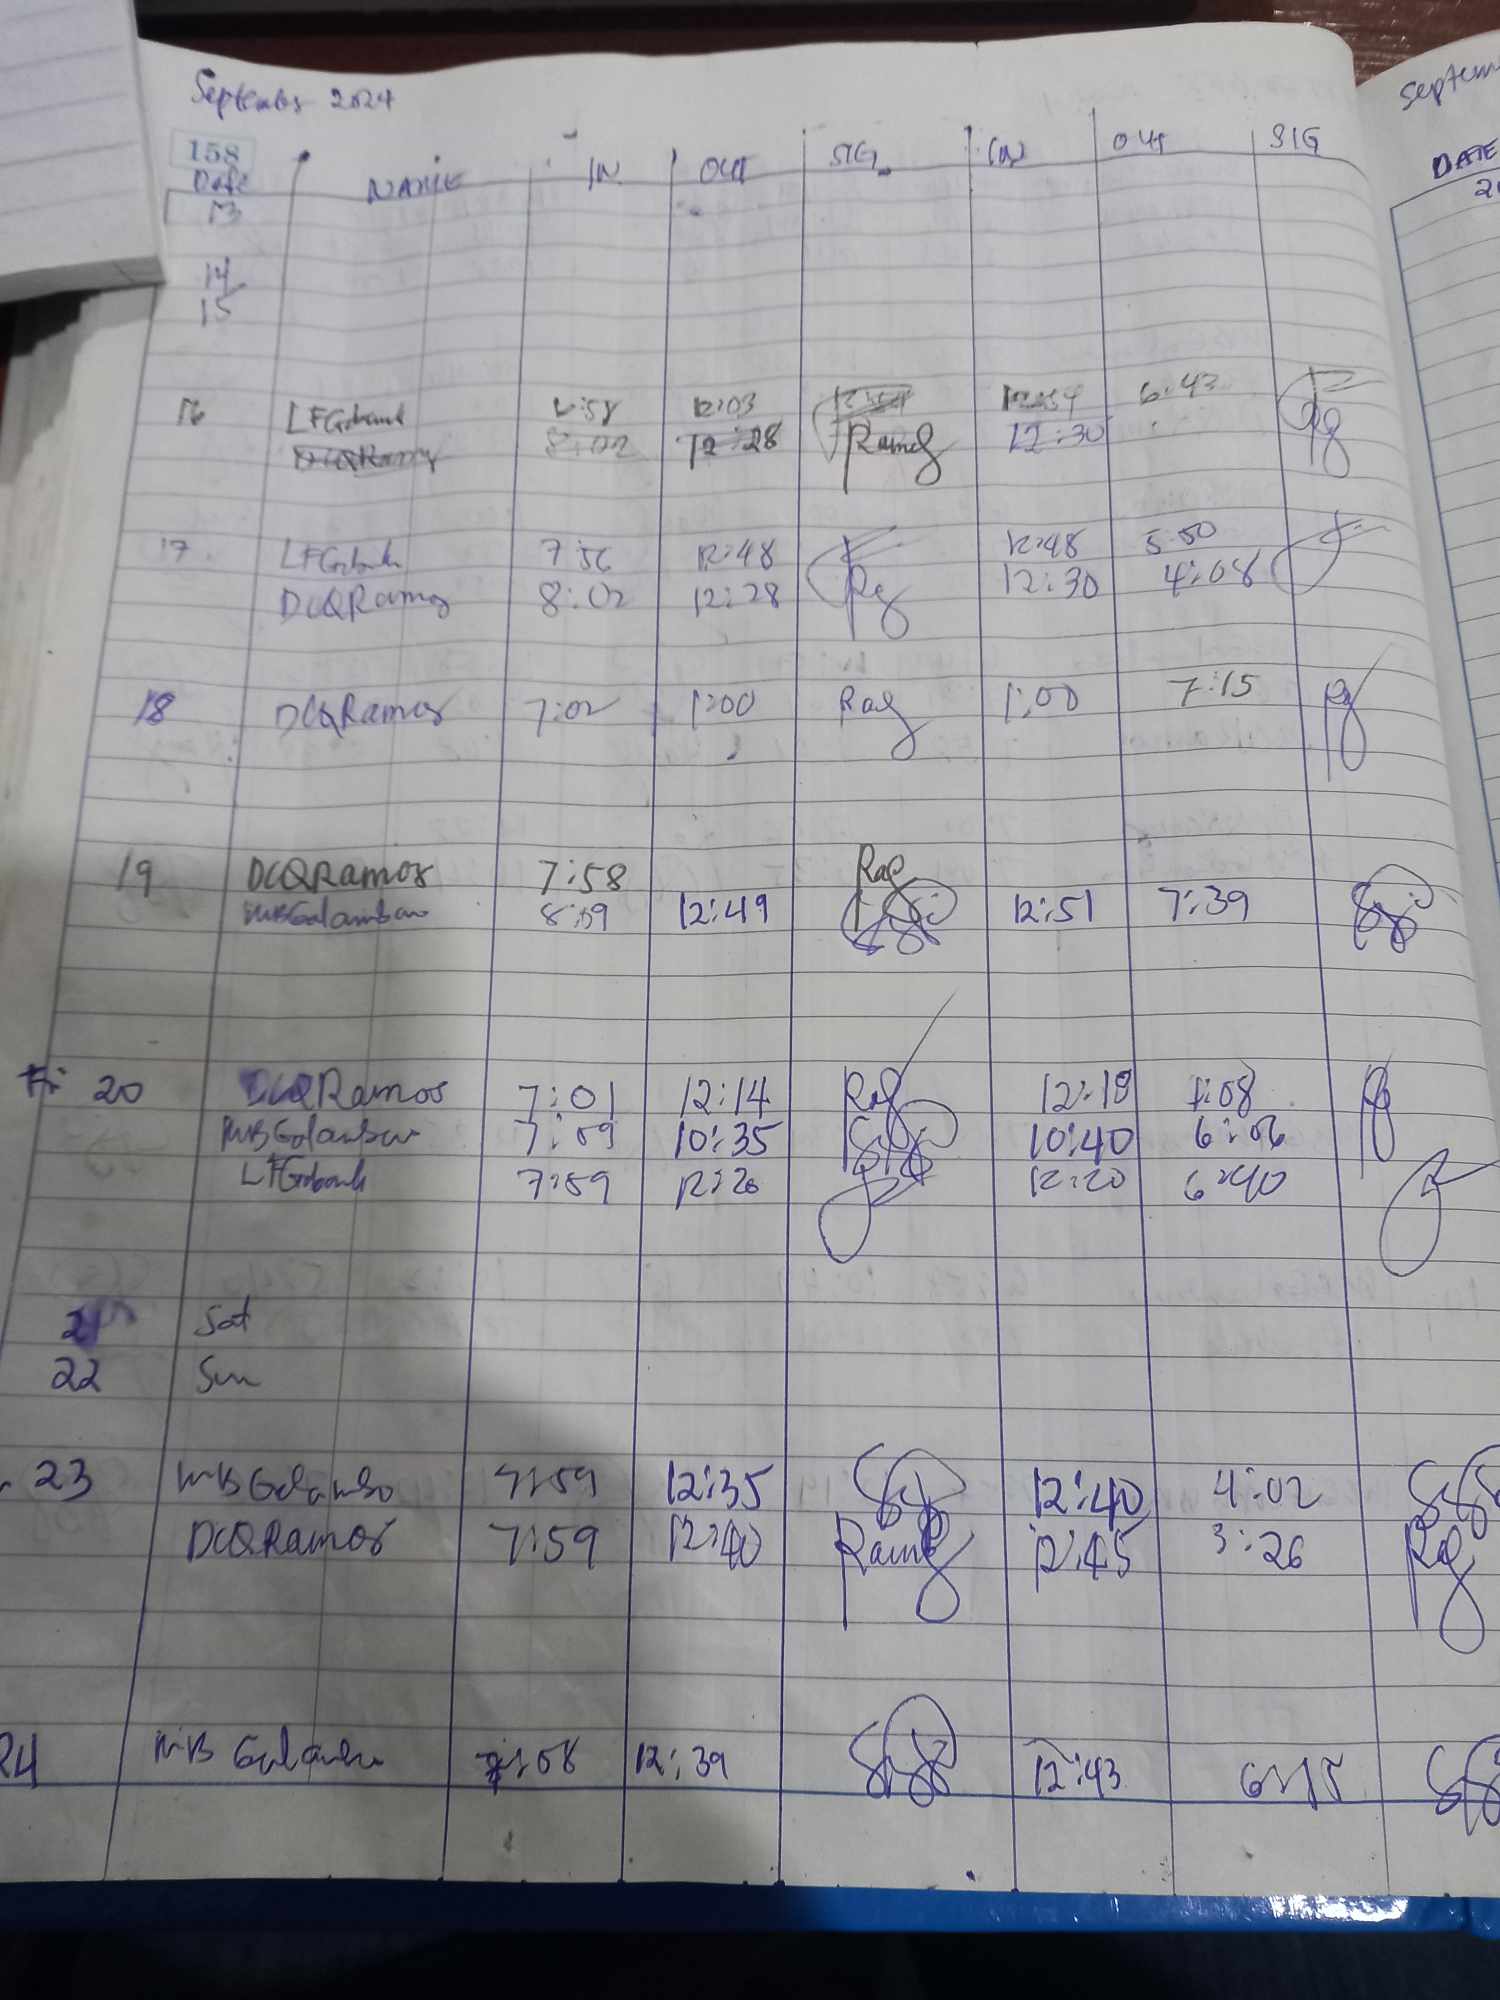 September 2024
158
Date NAME IN OUT SIG IN OUT SIG
13
14
15
16 LFGabank 12:03 6:43
DCQRamos 8:02 12:28 Ramos 12:30
17 LFGabank 7:56 12:48 12:48 5:50
DCQRamos 8:02 12:28 12:30 4:08
18 DCQRamos 7:02 1:00 1:00 7:15
19 DCQRamos 7:58
MBGalamban 8:59 12:49 12:51 7:39
Fri 20 DCQRamos 7:01 12:14 12:18
MBGalamban 7:59 10:35 10:40 6:06
LFGabank 7:59 12:20 12:20 6:40
21 Sat
22 Sun
23 MBGalamba 7:59 12:35 12:40 4:02
DCQRamos 7:59 12:40 12:45 3:26
24 MB 12:39 12:43
Septem
DATE